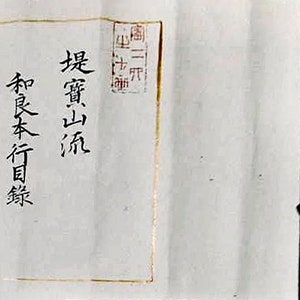 堤寳山流
和良本行目録